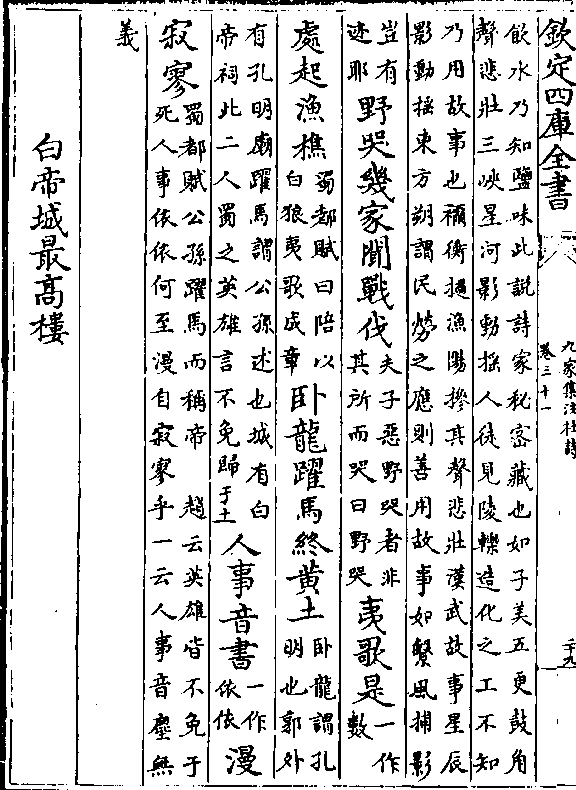 欽定四庫全書
九家集注杜詩
卷三十一
二十九
飲水乃知鹽味此說詩家秘密藏也如子美五更鼓角
聲悲壯三峽星河影動搖人徒見陵轢造化之工不知
乃用故事也禰衡撾漁陽摻其聲悲壯漢武故事星辰
影動搖東方朔謂民勞之應則善用故事如繫風捕影
豈有
迹耶
野哭幾家聞戰伐
夫子惡野哭者非
其所而哭曰野哭
夷歌是
一作
數
處起漁樵
蜀都賦曰陪以
白狼夷歌成章
卧龍躍馬終黃土
卧龍謂孔
明也郭外
有孔明廟躍馬謂公孫述也城有白
帝祠此二人蜀之英雄言不免歸于土
人事音書
一作
依依
漫
寂寥
蜀都賦公孫躍馬而稱帝 趙云英雄皆不免于
死人事依依何至漫自寂寥乎一云人事音塵無
義
白帝城最高樓